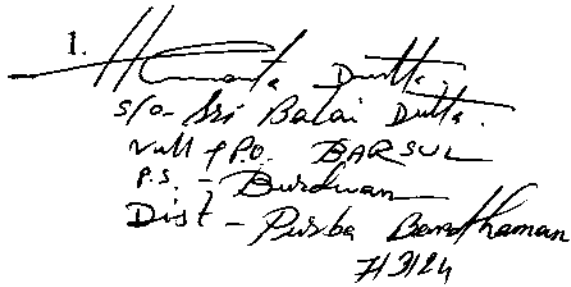 1. Hemanta Dutta.
S/o- Sri Balai Dutta.
Vill & P.O. BARSUL
P.S. - Burdwan
Dist - Purba Bardhaman
713124